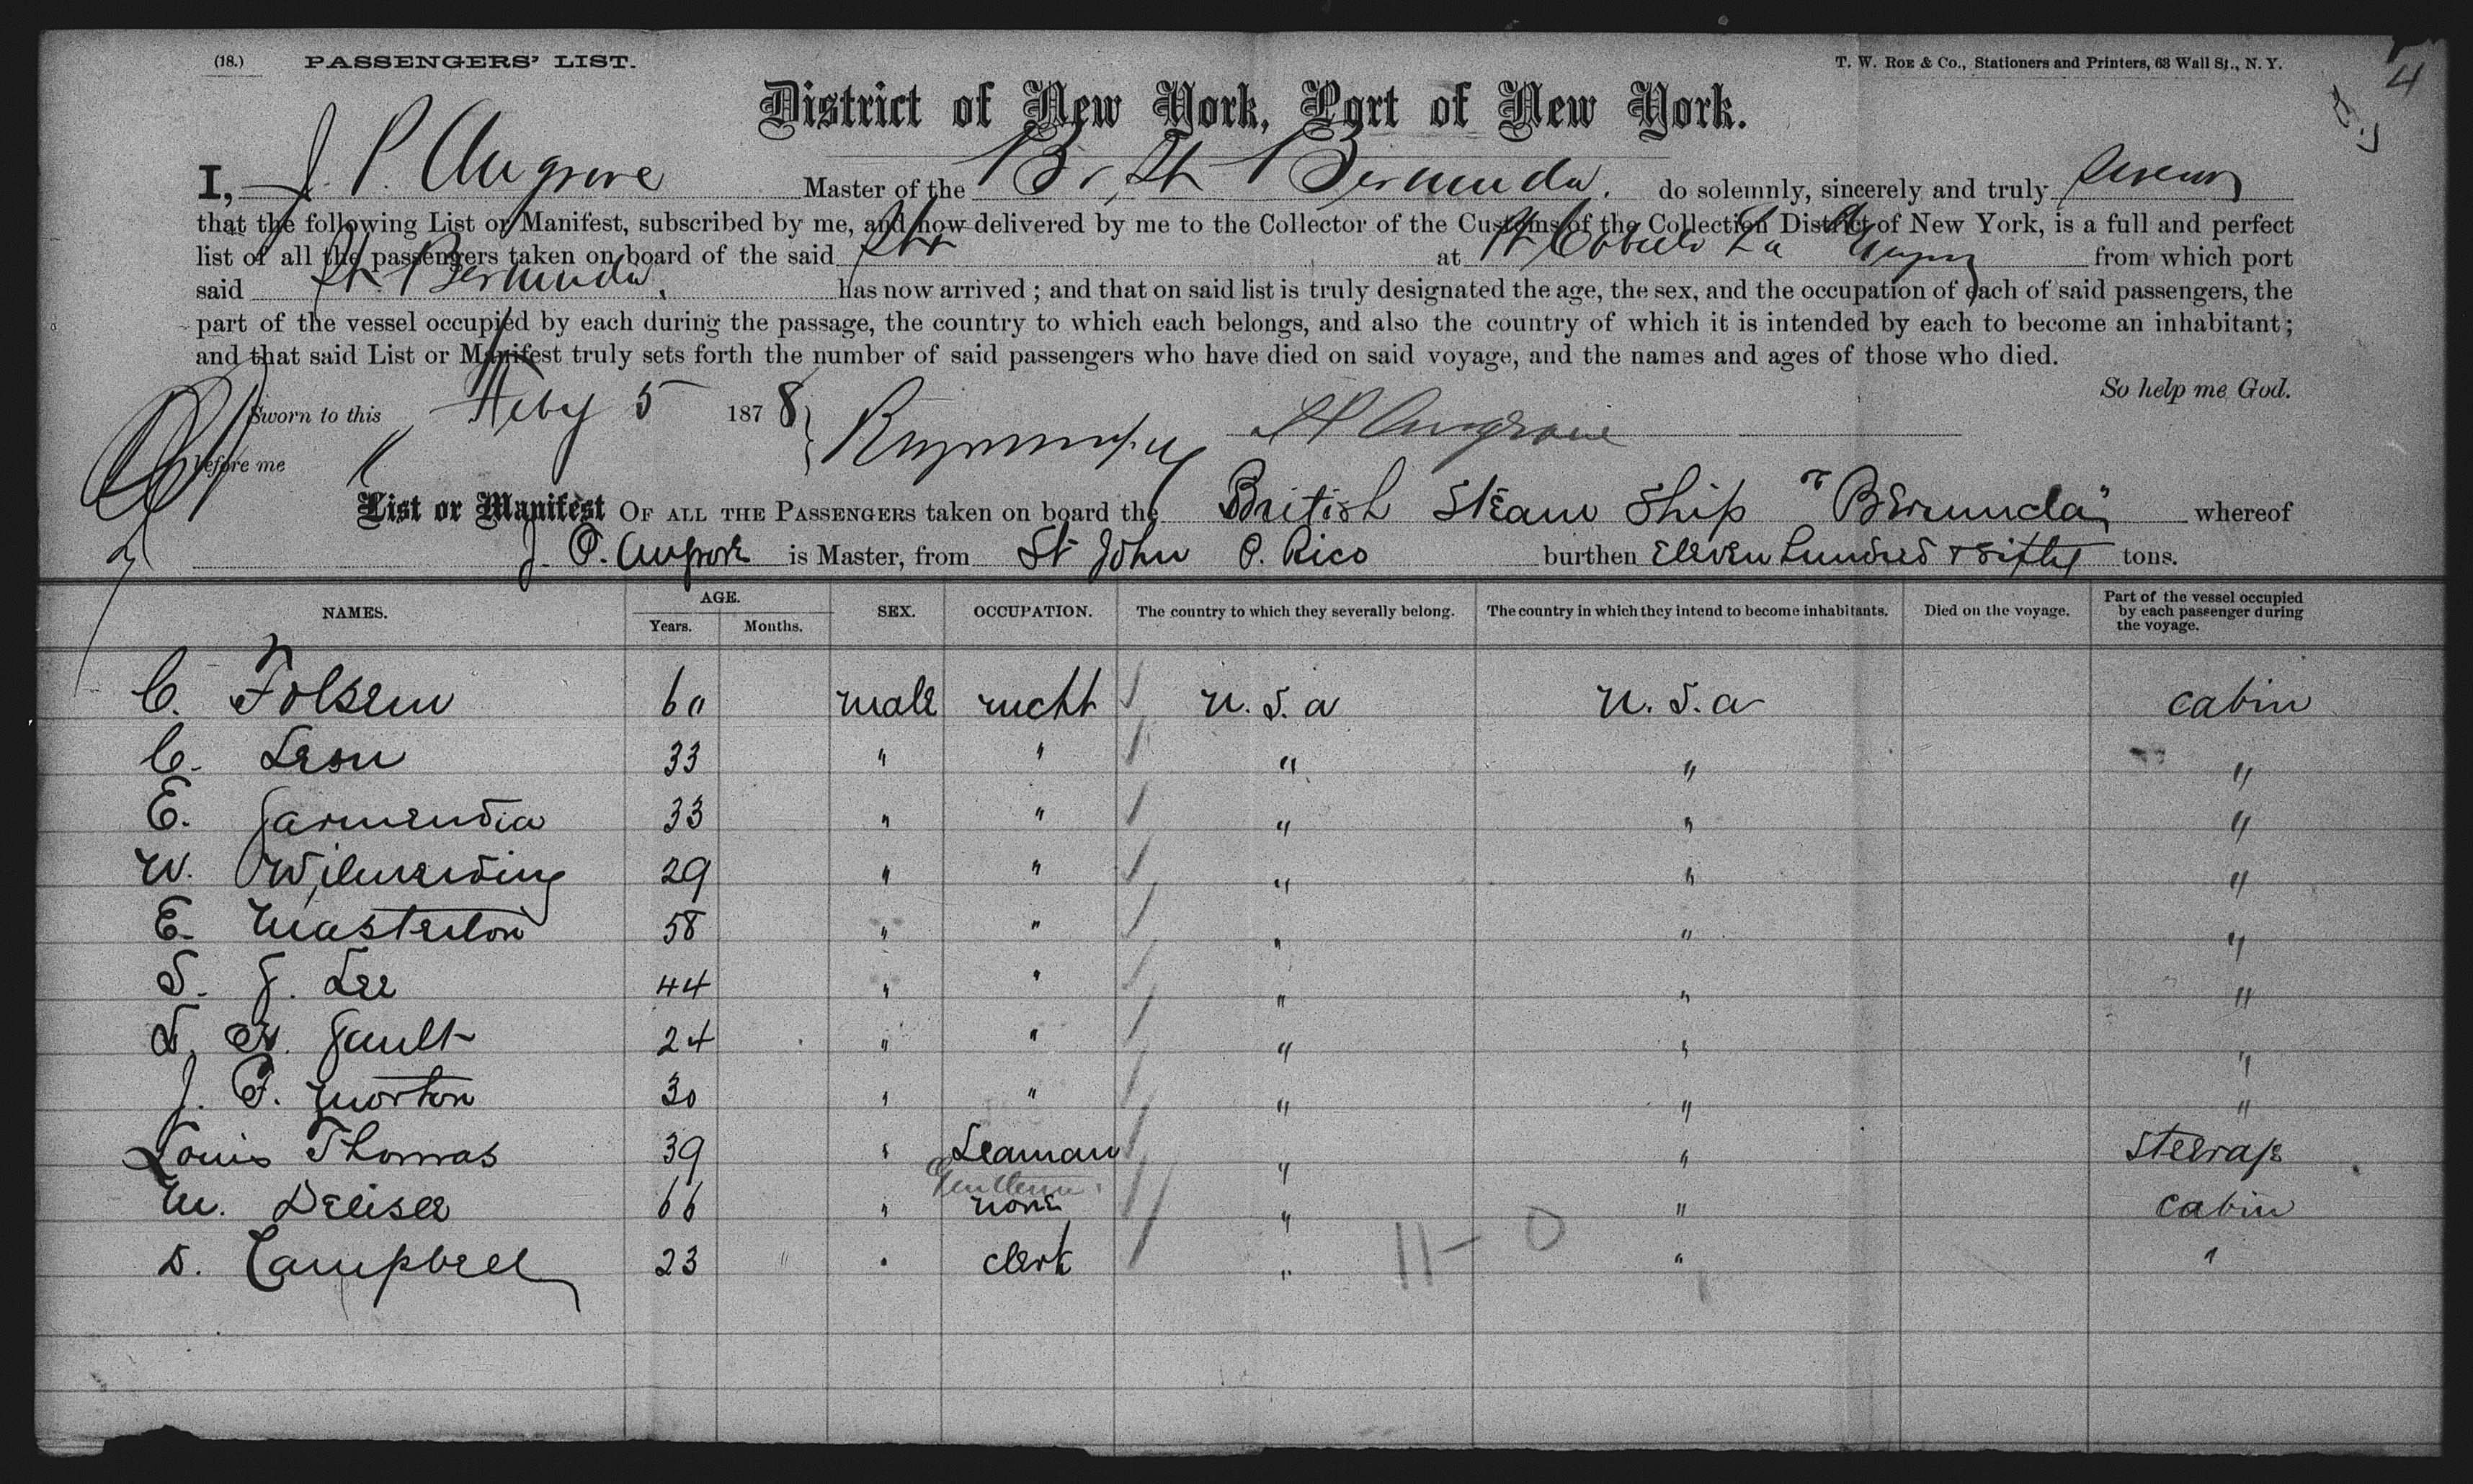 (18.) PASSENGERS' LIST. T. W. ROE & Co., Stationers and Printers, 63 Wall St., N. Y.
4
District of New York, Port of New York.
I, J. P. Angrove Master of the Br. St Bermuda. do solemnly, sincerely and truly swear
that the following List or Manifest, subscribed by me, and now delivered by me to the Collector of the Customs of the Collection District of New York, is a full and perfect
list of all the passengers taken on board of the said Str at from which port
said St. Bermuda, has now arrived ; and that on said list is truly designated the age, the sex, and the occupation of each of said passengers, the
part of the vessel occupied by each during the passage, the country to which each belongs, and also the country of which it is intended by each to become an inhabitant;
and that said List or Manifest truly sets forth the number of said passengers who have died on said voyage, and the names and ages of those who died.
So help me God.
Sworn to this Feby 5 1878 J P Angrove
before me
List or Manifest OF ALL THE PASSENGERS taken on board the British Steam Ship "Bermuda" whereof
J. P. Angrove is Master, from St John P. Rico burthen Eleven hundred & fifty tons.
NAMES. AGE. Years. Months. SEX. OCCUPATION. The country to which they severally belong. The country in which they intend to become inhabitants. Died on the voyage. Part of the vessel occupied by each passenger during the voyage.
C. Folsem 60 male mcht U. S. a U. S. a cabin
C. Leon 33 " " " " "
E. Garmendia 33 " " " " "
W. Wilmerding 29 " " " " "
E. Masterton 58 " " " " "
S. J. Lee 44 " " " " "
Gault 24 " " " " "
J. F. Morton 30 " " " " "
Louis Thomas 39 " Seaman " " Steerage
Gentleman
M. Delisle 66 " none " " cabin
D. Campbell 23 " clerk " " "
11 - 0